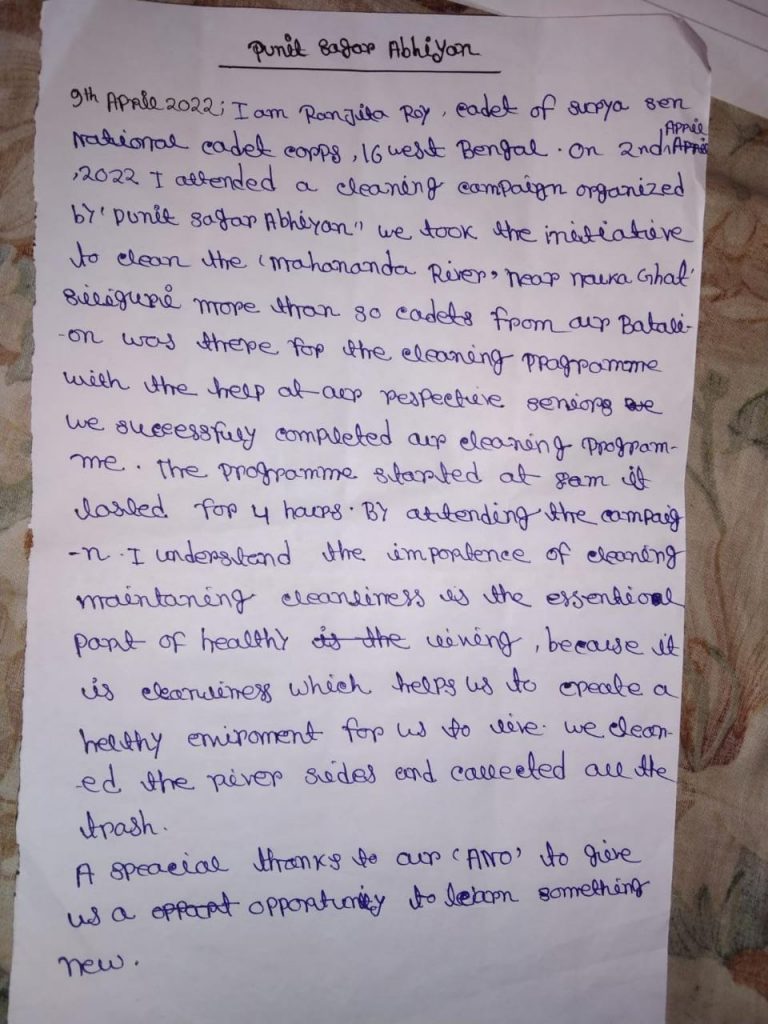 Punit Sagar Abhiyan
9th April 2022; I am Ranjita Roy, cadet of surya sen
National cadet corps, 16 west Bengal. On 2nd April
,2022 I attended a cleaning campaign organized
by "Punit Sagar Abhiyan" we took the initiative
to clean the 'Mahananda River, near Nauka Ghat'
Siliguri more than 30 cadets from our Batali-
-on was there for the cleaning programme
with the help at our respective seniors we
we successfuly completed our cleaning program-
me. The programme started at 8am it
lasted for 4 hours. By attending the campaig
-n. I understand the importence of cleaning
maintaning cleanliness is the essential
part of healthy is the living, because it
is cleanliness which helps us to create a
helthy enviroment for us to live. we clean-
-ed the river sides and collected all the
trash.
A speacial thanks to our 'ANO' to give
us a opportunity to learn something
new.